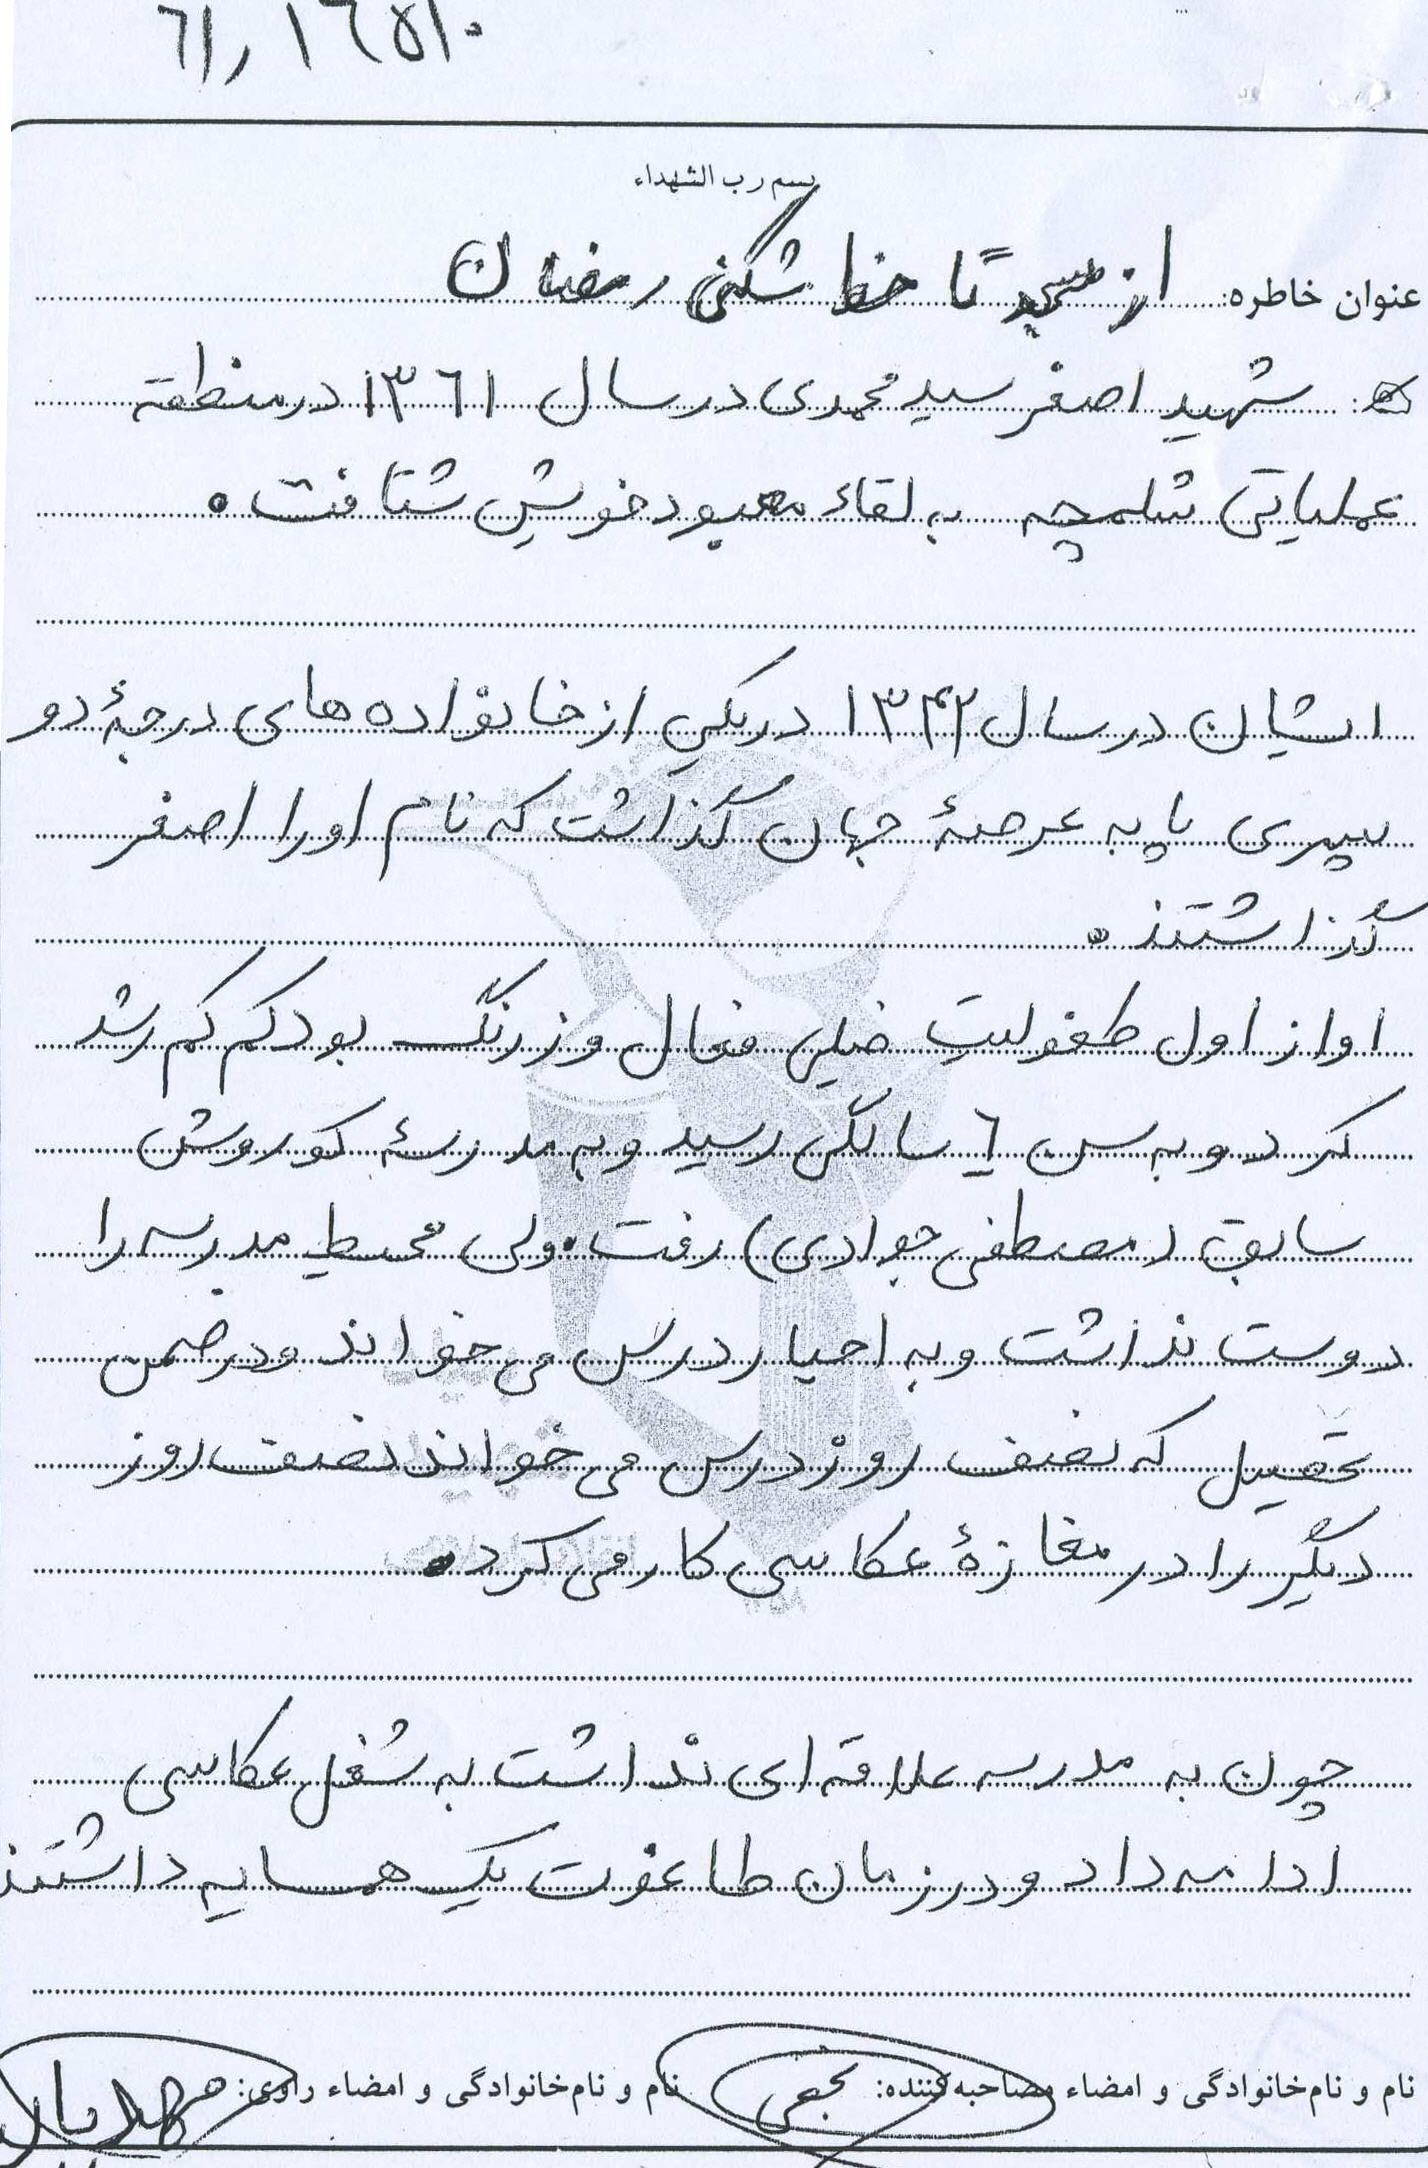 ٦١٫١٦٥١٠
بسم رب الشهداء
عنوان خاطره: از مسجد تا خط شکنی رمضان
شهید اصغر سید محمدی در سال ١٣٦١ در منطقه
عملیاتی شلمچه به لقاء معبود خویش شتافت.
ایشان در سال ١٣۴٢ در یکی از خانواده های درجهٔ دو
سپری پا به عرصهٔ جهان گذاشت که نام او را اصغر
گذاشتند.
او از اول طفولیت خیلی فعال و زرنگ بود کم کم رشد
کرد و به سن ٦ سالگی رسید و به مدرسهٔ کوروش
سابق (مصطفی جوادی) رفت. ولی محیط مدرسه را
دوست نداشت و به اجبار درس می خواند و در ضمن
تحصیل که نصف روز درس می خواند نصف روز
دیگر را در مغازهٔ عکاسی کار می کرد.
چون به مدرسه علاقه ای نداشت به شغل عکاسی
ادامه داد و در زمان طاغوت یک همسایه داشتند
نام و نام‌خانوادگی و امضاء مصاحبه‌کننده: نجفی نام و نام‌خانوادگی و امضاء راوی: